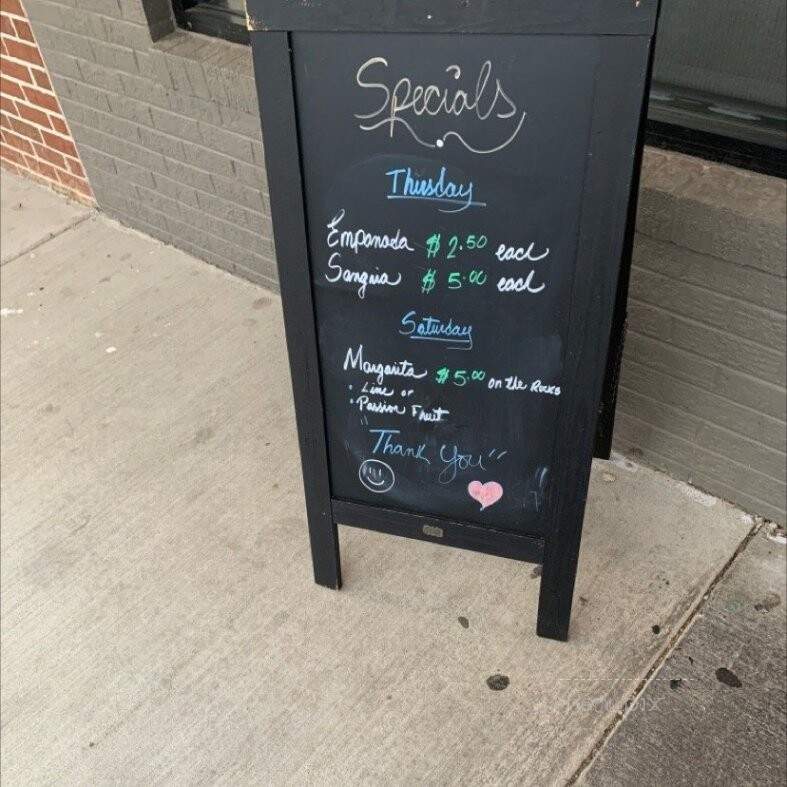 Specials
Thursday
Empanada $2.50 each
Sangria $5.00 each
Saturday
Margarita $5.00 on the Rocks
• Lime or
• Passion Fruit
"Thank you"